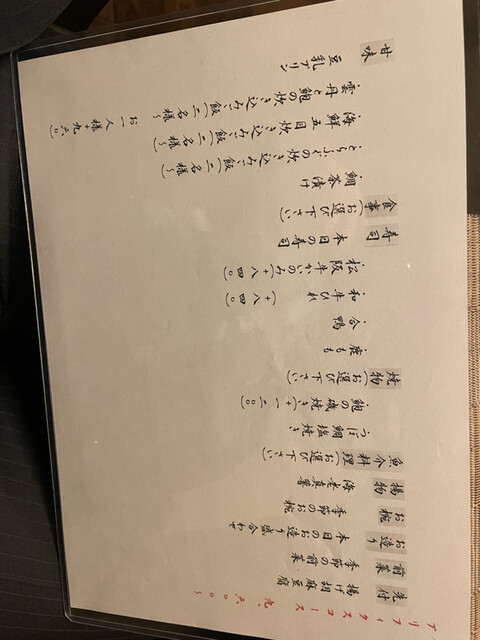 プリフィクスコース 九、六〇〇〜
先付
揚げ胡麻豆腐
前菜
季節の前菜
お造り
本日のお造り盛合わせ
お椀
季節のお椀
揚物
海老真薯
魚介料理(お選び下さい)
つぼ鯛塩焼き
鮑の磯焼き(+一二〇)
焼物(お選び下さい)
鹿もも
合鴨
和牛ひれ(+八四〇)
松阪牛かいのみ(+八四〇)
寿司
本日の寿司
食事(お選び下さい)
鯛茶漬け
とらふぐの炊き込みご飯(二名様〜)
海鮮五目炊き込みご飯(二名様〜)
雲丹と鮑の炊き込みご飯(二名様〜
お一人様+九六〇)
甘味
豆乳プリン